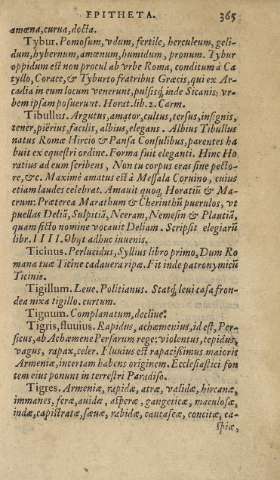 EPITHETA. 365
amœna, curua, docta.
Tybur. Pomosum, vdum, fertile, herculeum, geli-
dum, hybernum, amœnum, humidum, pronum. Tybur
oppidum est non procul ab vrbe Roma, conditum à Ca
tyllo, Corace, & Tyburto fratribus Græcis, qui ex Ar-
cadia in eum locum venerunt, pulsisq́; inde Sicanis: vr-
bem ipsam posuerunt. Horat. lib. 2. Carm.
Tibullus. Argutus, amator, cultus, tersus, insignis,
tener, pierius, facilis, albius, elegans. Albius Tibullus
natus Romæ Hircio & Pansa Consulibus, parentes ha
buit ex equestri ordine. Forma fuit eleganti. Hinc Ho
ratius ad eum scribens, Non tu corpus eras sine pecto-
re, &c. Maximè amatus est à Messala Coruino, cuius
etiam laudes celebrat. Amauit quoq; Horatiũ & Ma-
crum: Præterea Marathum & Cherinthũ puerulos, vt
puellas Deliã, Sulpitiã, Neeram, Nemesin & Plautiã,
quam ficto nomine vocauit Deliam. Scripsit elegiarũ
libr. IIII. Obyt adhuc iuuenis.
Ticinus. Perlucidus, Syllius libro primo, Dum Ro
mana tuæ Ticine cadauera ripæ. Fit inde patronymicũ
Ticinis.
Tigillum. Leue. Politianus. Statq́; leui casa fron-
dea nixa tigillo. curtum.
Tignum. Complanatum, decliue.
Tigris, fluuius. Rapidus, achæmenius, id est, Per-
sicus, ab Achæmene Persarum rege: violentus, tepidus,
vagus, rapax, celer. Fluuius est rapacissimus maioris
Armeniæ, incertam habens originem. Ecclesiastici fon
tem eius ponunt in terrestri Paradiso.
Tigres. Armeniæ, rapidæ, atræ, validæ, hircanæ,
immanes, feræ, auidæ, asperæ, gangeticæ, maculosæ,
indæ, capistratæ, sæuæ, rabidæ, caucaseæ, concitæ, ca-
spiæ,